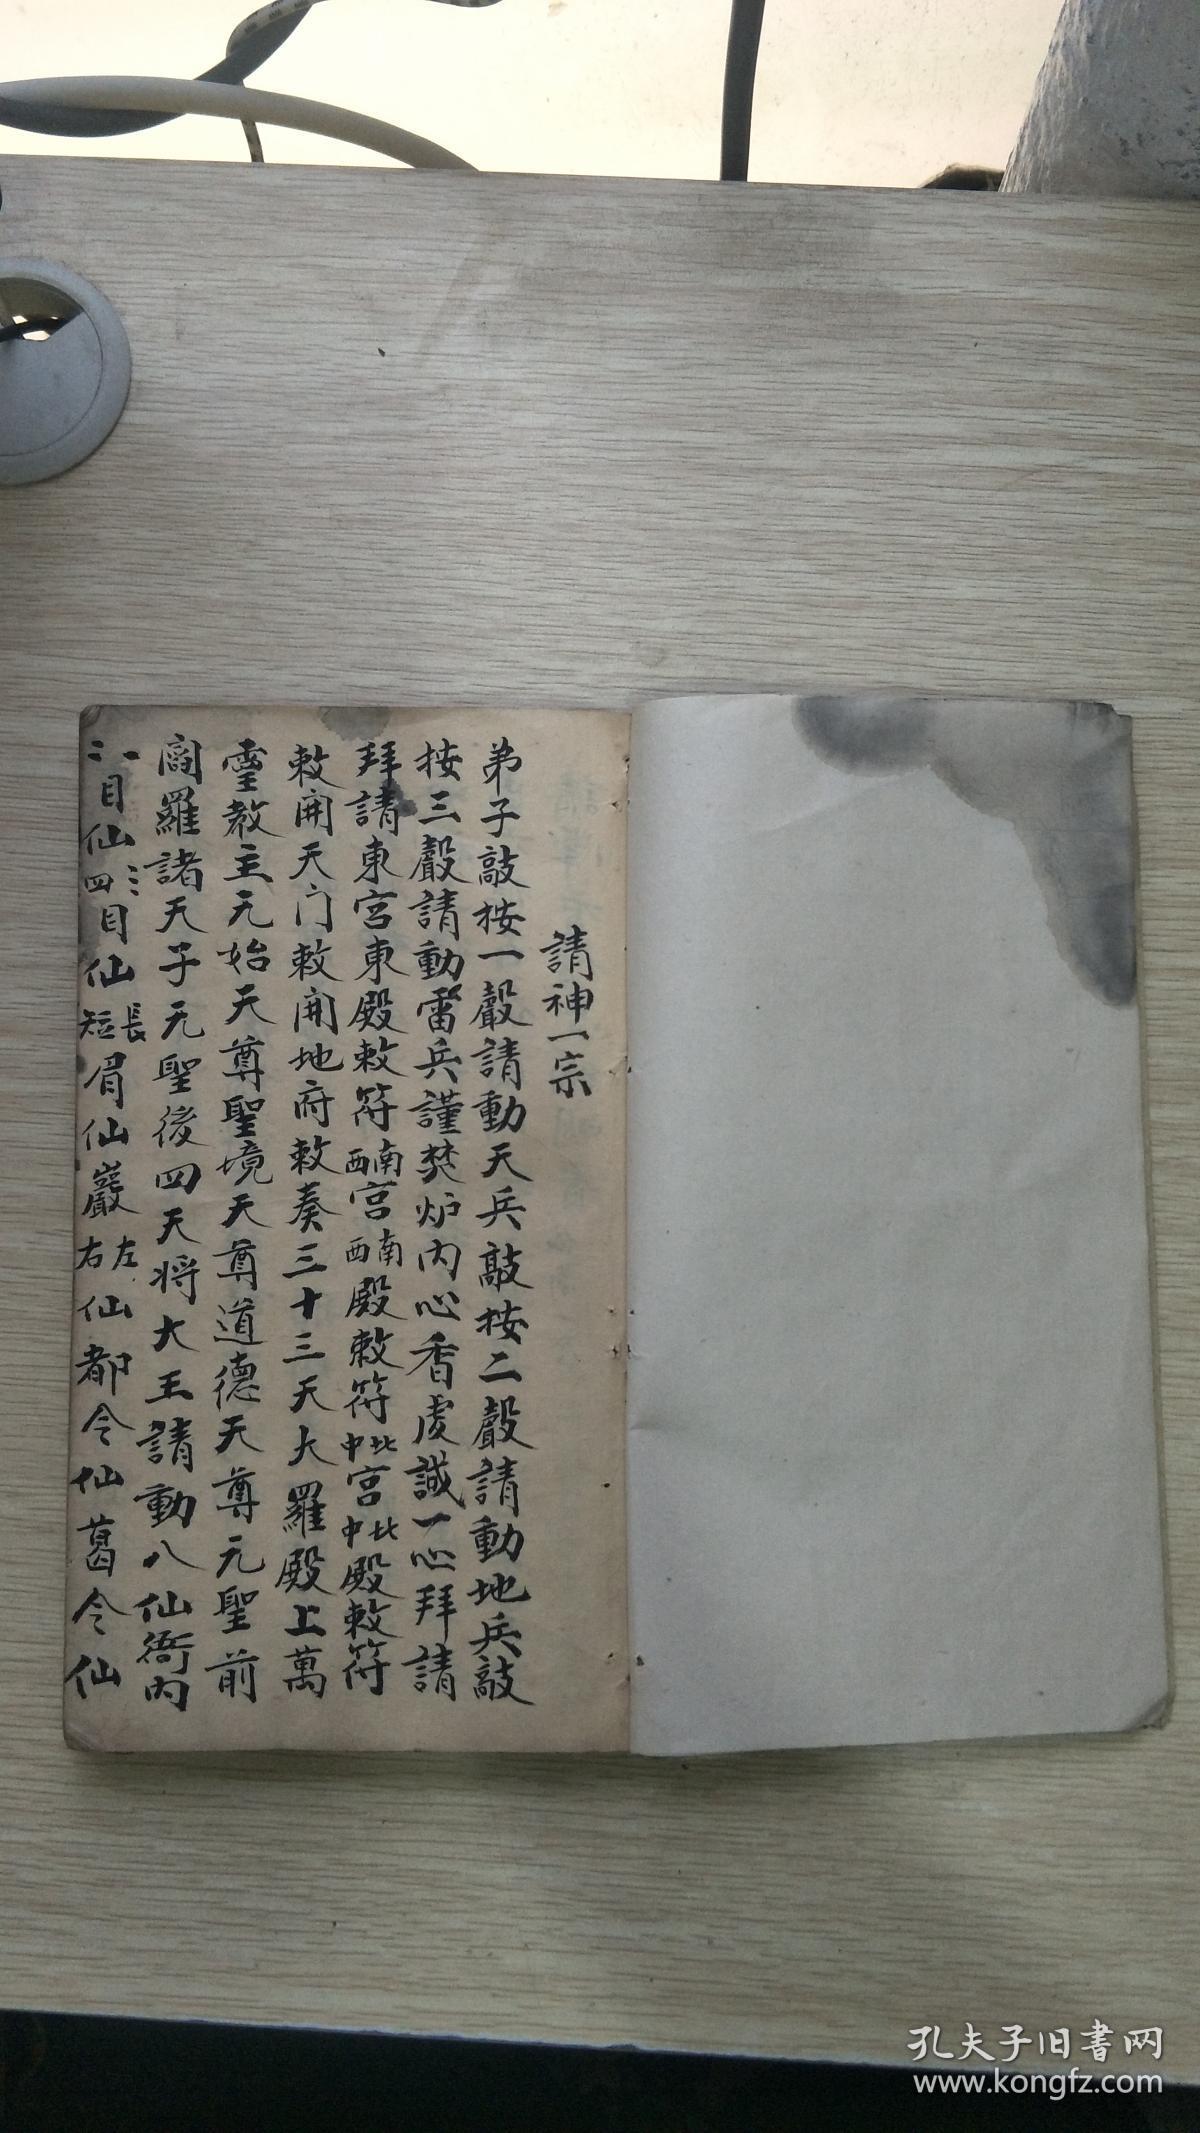 請神一宗
弟子敲按一聲請動天兵敲按二聲請動地兵敲
按三聲請動雷兵謹焚炉内心香虔誠一心拜請
拜請東宮東殿敕符南西宮南西殿敕符北中宮北中殿敕符
敕開天门敕開地府敕奏三十三天大羅殿上萬
霊教主元始天尊聖境天尊道德天尊元聖前
閻羅諸天子元聖後四天将大王請動八仙衙内
一二目仙三四目仙長短眉仙巖左右仙都令仙葛令仙
孔夫子旧书网
www.kongfz.com